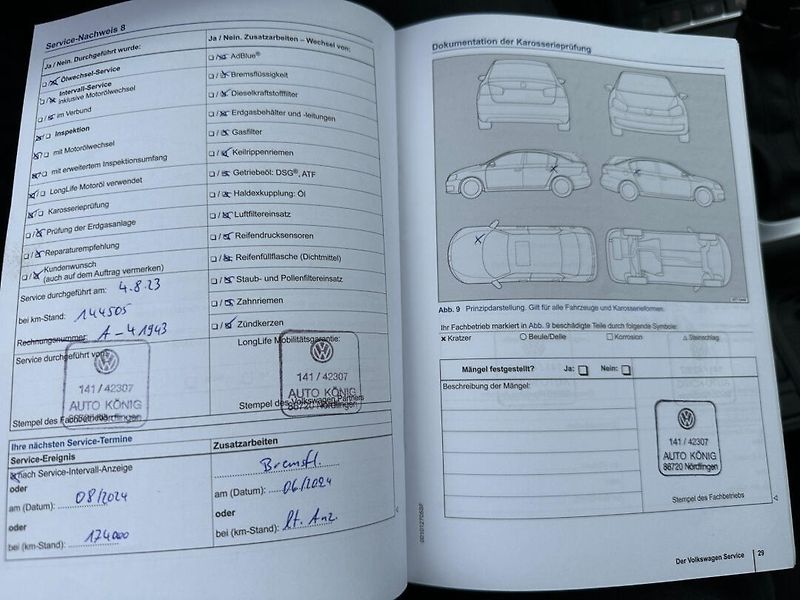 Service-Nachweis 8
Ja / Nein. Durchgeführt wurde:
Ölwechsel-Service
Intervall-Service
inklusive Motorölwechsel
im Verbund
Inspektion
mit Motorölwechsel
mit erweitertem Inspektionsumfang
LongLife Motoröl verwendet
Karosserieprüfung
Prüfung der Erdgasanlage
Reparaturempfehlung
Kundenwunsch
(auch auf dem Auftrag vermerken)
Service durchgeführt am: 4.8.23
bei km-Stand: 144505
Rechnungsnummer: A-41943
Service durchgeführt von:
141 / 42307
AUTO KÖNIG
Stempel des Fachbetriebs
Ja / Nein. Zusatzarbeiten – Wechsel von:
AdBlue®
Bremsflüssigkeit
Dieselkraftstofffilter
Erdgasbehälter und -leitungen
Gasfilter
Keilrippenriemen
Getriebeöl: DSG®, ATF
Haldexkupplung: Öl
Luftfiltereinsatz
Reifendrucksensoren
Reifenfüllflasche (Dichtmittel)
Staub- und Pollenfiltereinsatz
Zahnriemen
Zündkerzen
LongLife Mobilitätsgarantie:
141 / 42307
AUTO KÖNIG
86720 Nördlingen
Stempel des Volkswagen Partners
Ihre nächsten Service-Termine
Service-Ereignis
nach Service-Intervall-Anzeige
oder
am (Datum): 08/2024
oder
bei (km-Stand): 174000
Zusatzarbeiten
Bremsfl.
am (Datum): 06/2024
oder
bei (km-Stand): lt. Anz.
Dokumentation der Karosserieprüfung
Abb. 9 Prinzipdarstellung. Gilt für alle Fahrzeuge und Karosserieformen.
Ihr Fachbetrieb markiert in Abb. 9 beschädigte Teile durch folgende Symbole:
x Kratzer ○ Beule/Delle □ Korrosion △ Steinschlag
Mängel festgestellt? Ja: Nein:
Beschreibung der Mängel:
141 / 42307
AUTO KÖNIG
86720 Nördlingen
Stempel des Fachbetriebs
Der Volkswagen Service 29